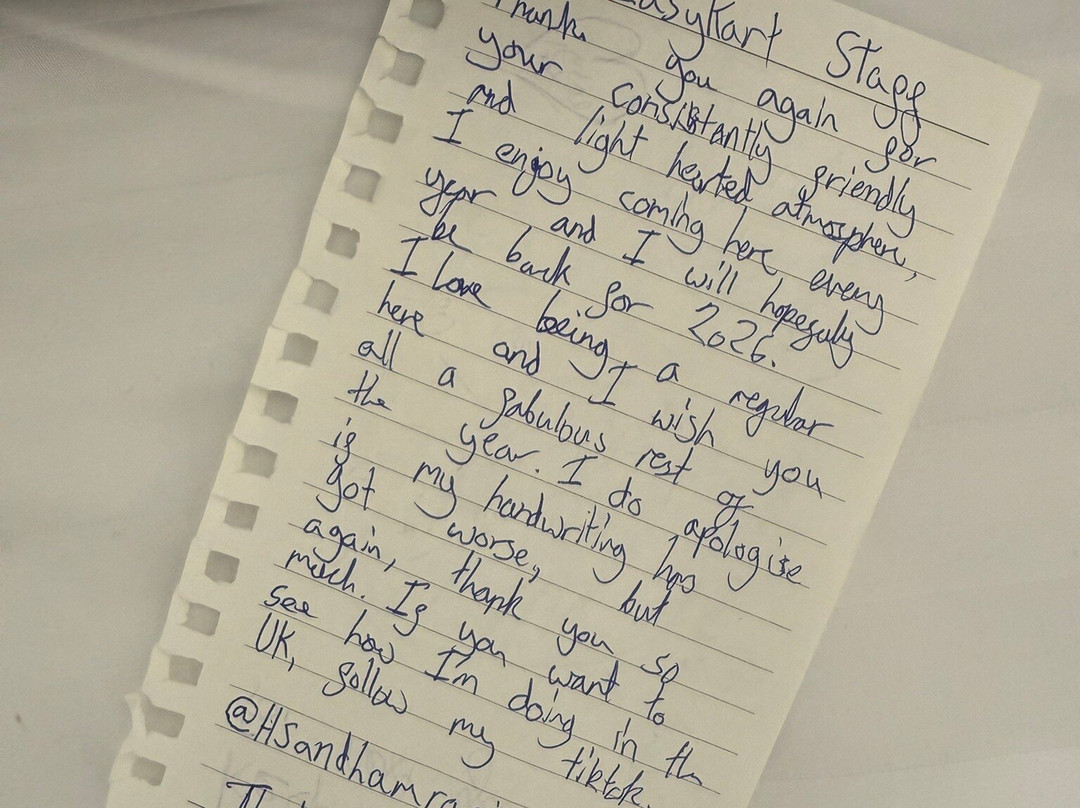 EasyKart Staff
Thank you again for
your consistantly friendly
and light hearted atmosphere,
I enjoy coming here every
year and I will hopefuly
be back for 2026.
I love being a regular
here and I wish you
all a fabulous rest of
the year. I do apologise
if my handwriting has
got worse, but
again, thank you so
much. If you want to
see how I'm doing in the
UK, follow my tiktok.